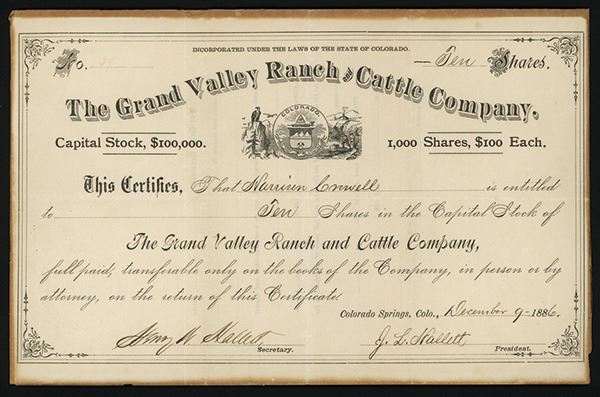 INCORPORATED UNDER THE LAWS OF THE STATE OF COLORADO.
No. Ten Shares.
The Grand Valley Ranch and Cattle Company.
COLORADO
Capital Stock, $100,000. 1,000 Shares, $100 Each.
This Certifies, That Harrison is entitled
to Ten Shares in the Capital Stock of
The Grand Valley Ranch and Cattle Company,
full paid, transferable only on the books of the Company, in person or by
attorney, on the return of this Certificate.
Colorado Springs, Colo., December 9 - 1886.
Henry W Hallett J. L. Hallett
Secretary. President.